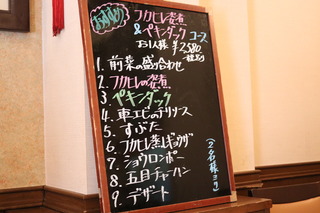 おすすめ
フカヒレ姿煮
&ペキンダック コース
お1人様 ¥2,580
1. 前菜の盛り合わせ
2. フカヒレの姿煮
3. ペキンダック
4. 車エビのチリソース
5. すぶた
6. フカヒレ蒸しギョウザ
7. ショウロンポー
8. 五目チャーハン
9. デザート
(2名様ヨリ)